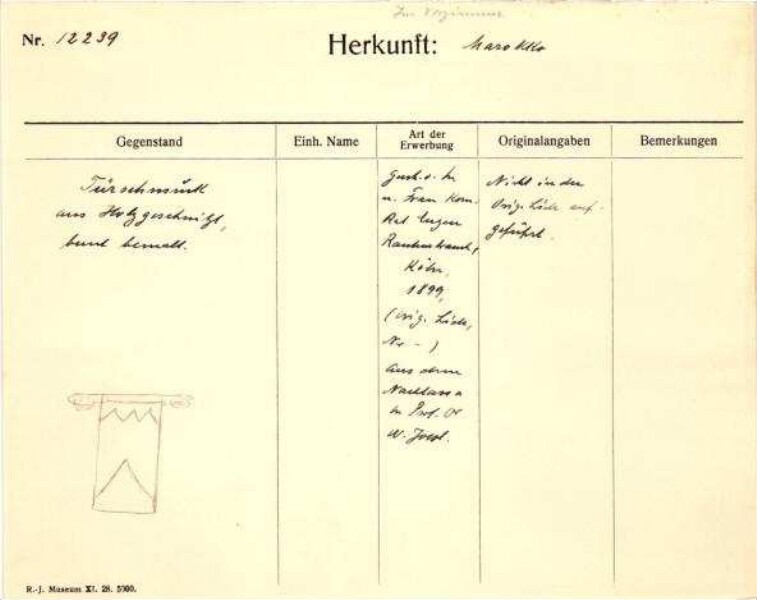 Nr. 12239
Herkunft: Marokko
Gegenstand
Einh. Name
Art der
Erwerbung
Originalangaben
Bemerkungen
Türschmuck
aus Holz geschnitzt,
bunt bemalt.
Gesch. v. H.
u. Frau Kom.
Rat Eugen
Rautenstrauch,
Köln,
1899,
(Orig. Liste,
Nr - )
Aus dem
Nachlass
Prof. Dr
W. Joest.
Nicht in der
Orig. Liste auf-
geführt.
R.-J. Museum XI. 28. 5000.